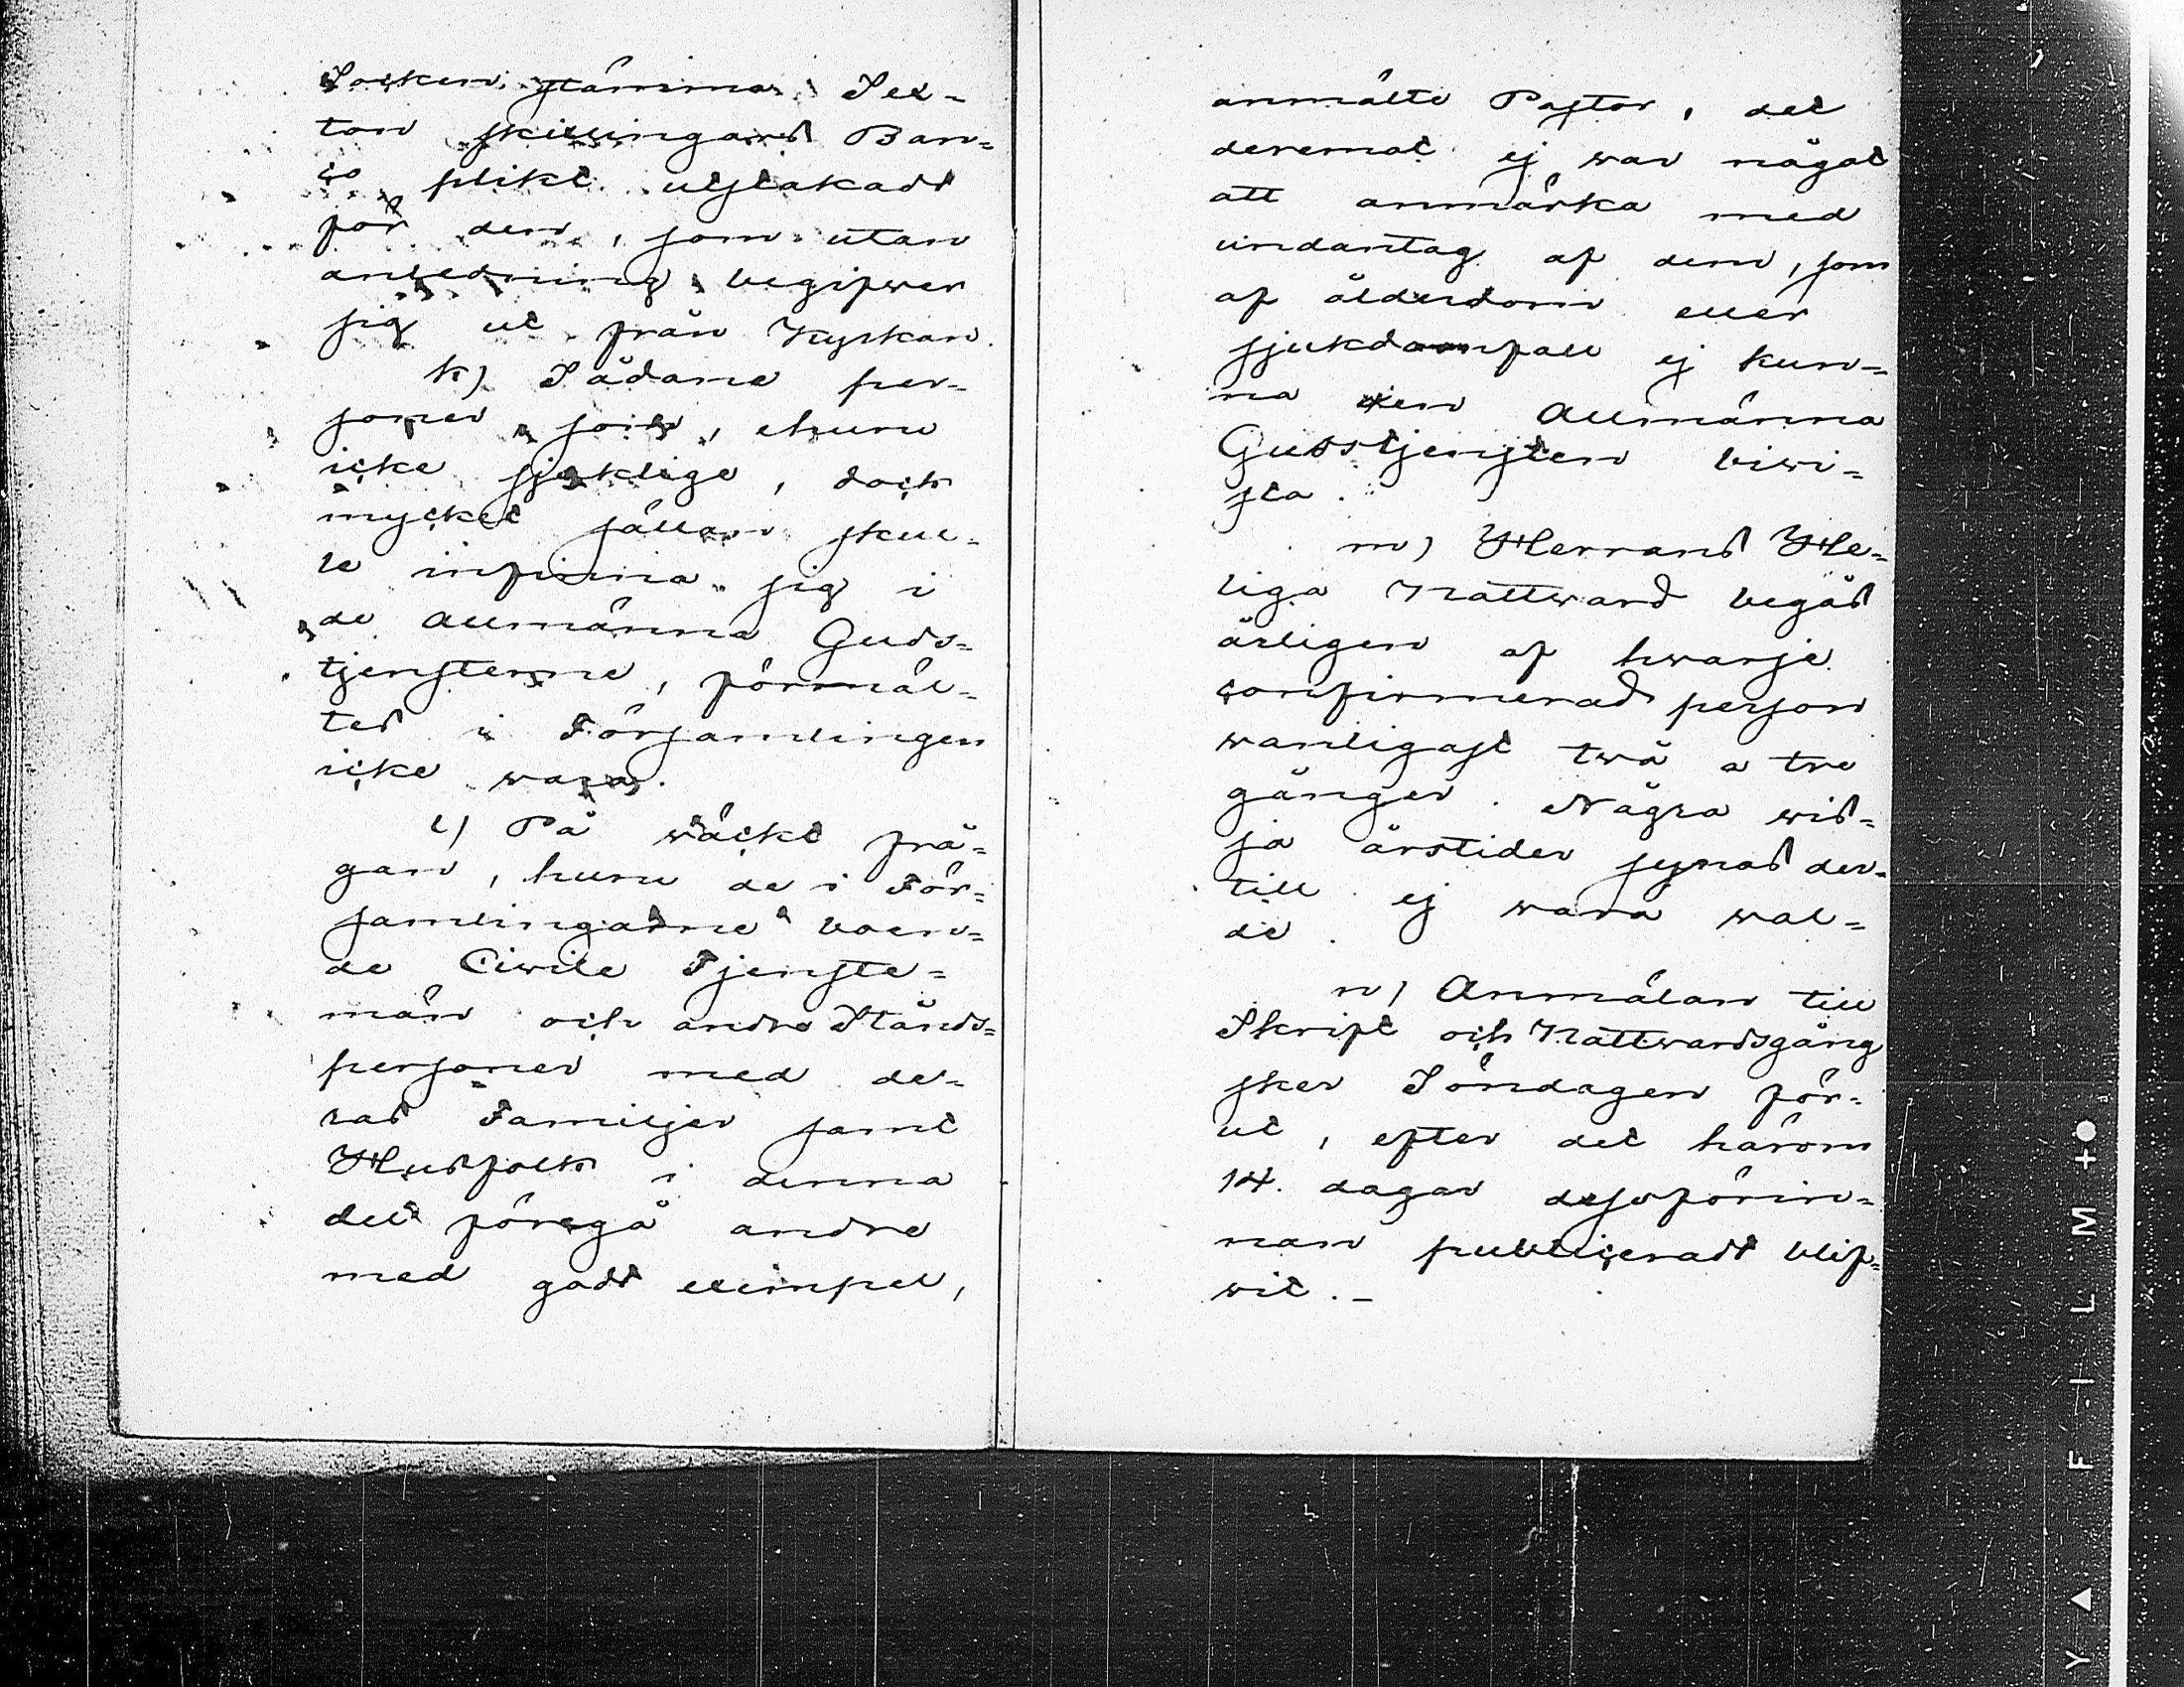 Socken stämma Sex-
ton skillingars Ban=
co plikt utstakadt
för den, som utan
anledning begifwer
sig ut från Kyrkan.
k) Sådane per-
soner som, ehuru
icke sjuklige, doch
mycket sällan skul-
le infinna sig i
de allmänna Guds=
tjensterne, förmäl-
tes i Församlingen
icke wara.
l) På wäckt frå=
gan, huru de i För=
samlingarne boen=
de Civile Tjenste=
män och andre Stånds=
personer med de-
ras Familjer samt
Husfolk i denna
del föregå andre
med godt exempel,
anmälte Pastor, det
deremot ej war något
att anmärka med
undantag af dem, som
af ålderdom eller
sjukdomfall ej kun=
na den Allmänna
Gudstjensten biwi=
sta.
m) Herrans He=
liga Nattward begås
årligen af hwarje
confirmerad person
wanligast twå a tre
gånger. Några wis=
sa årstider synas der=
till ej wara wal=
de.
n) Anmälan till
Skrift och Nattwardsgång
sker Söndagen för-
ut, efter det härom
14. dagar dessförin=
nan publiceradt blif=
wit. -
FILM
Y